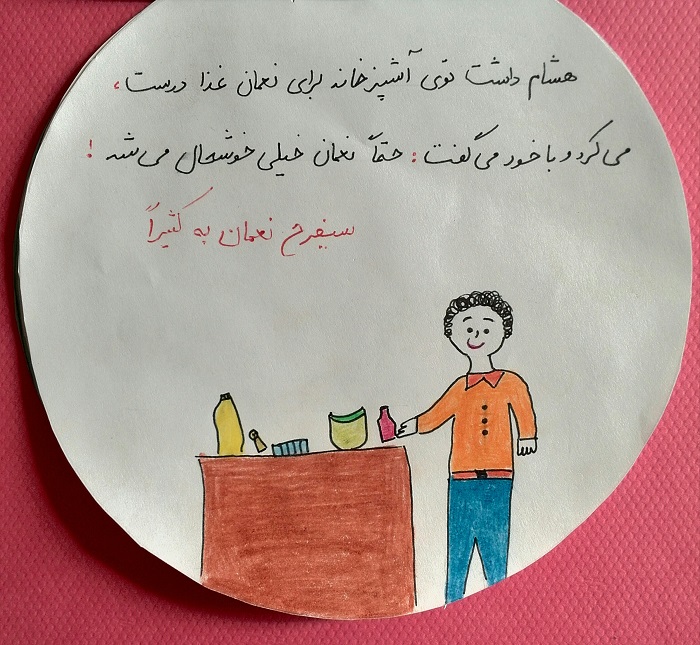 هشام داشت توی آشپزخانه برای نعمان غذا درست،
می‌کرد و با خود می‌گفت: حتماً نعمان خیلی خوشحال می‌شه!
سیفرح نعمان به کثیراً